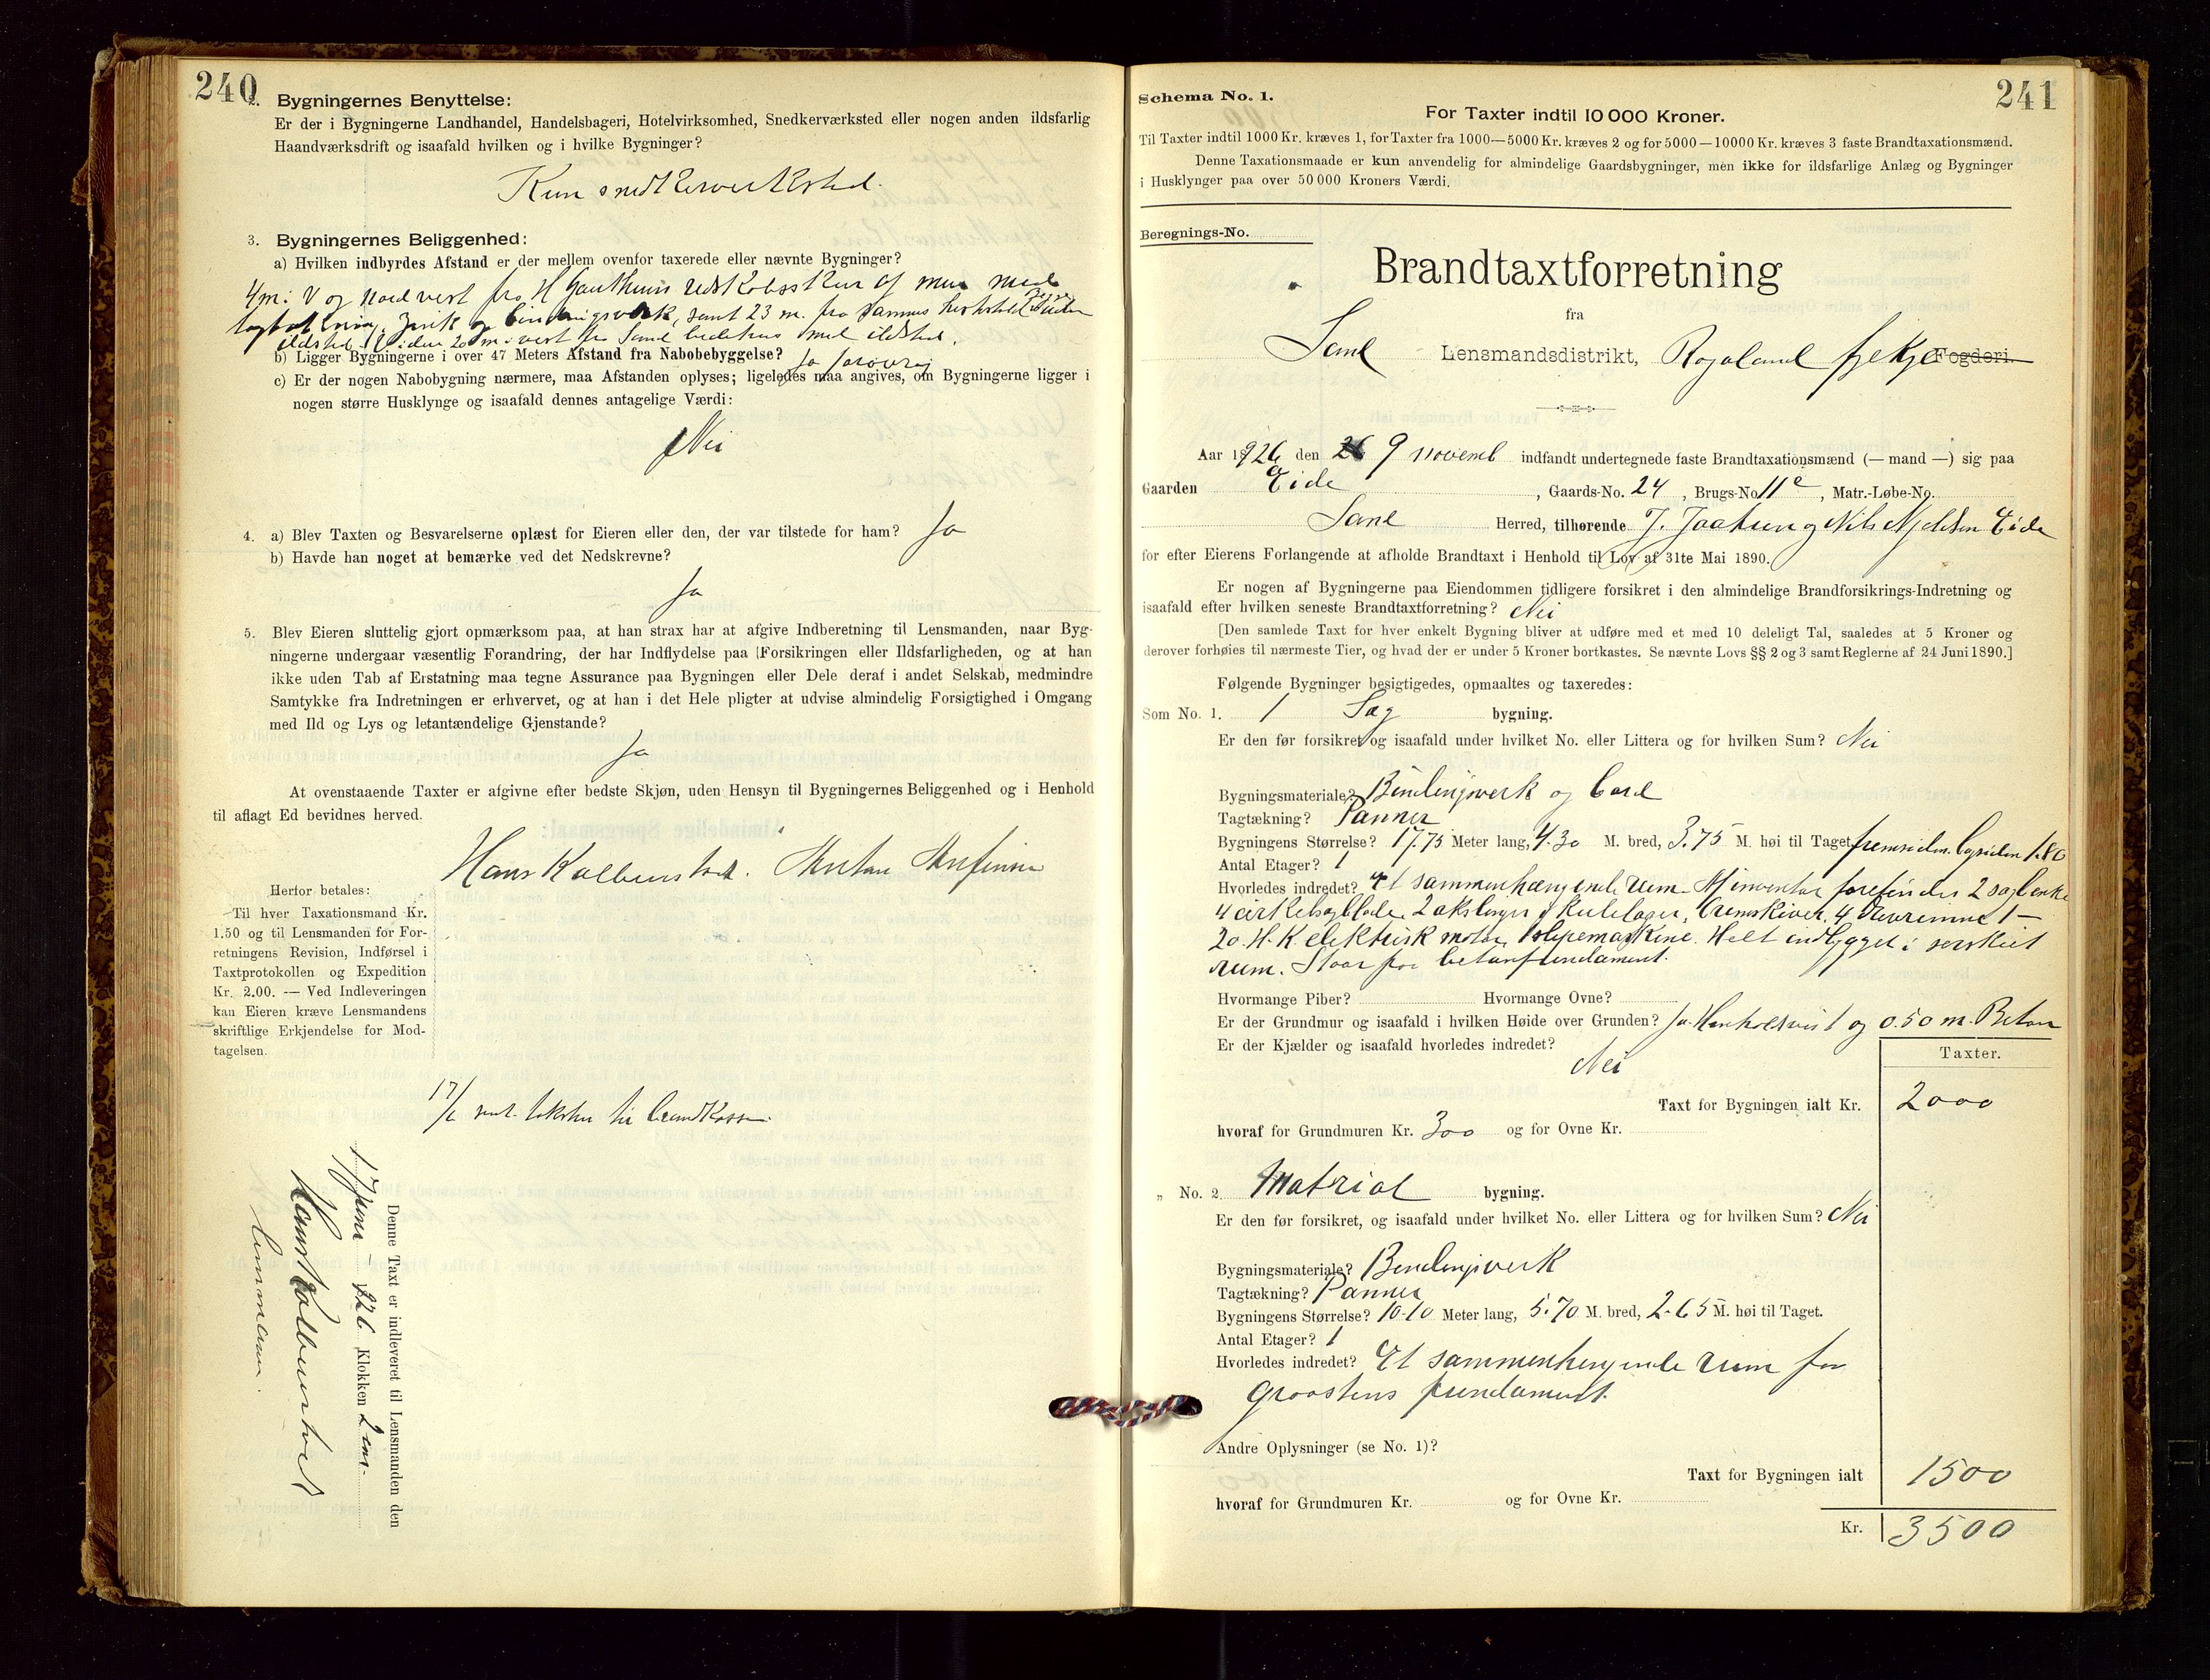 240
2. Bygningernes Benyttelse:
Er der i Bygningerne Landhandel, Handelsbageri, Hotelvirksomhed, Snedkerværksted eller nogen anden ildsfarlig
Haandværksdrift og isaafald hvilken og i hvilke Bygninger?
Kun snedkerverksted.
3. Bygningernes Beliggenhed:
a) Hvilken indbyrdes Afstand er der mellem ovenfor taxerede eller nævnte Bygninger?
4 m. V og nordvest fra H redskabsskur af mur med
og bindingsverk, samt 23 m. fra sammes
ildsted. 20 m. vest fra Sand bedehus med ildsted.
b) Ligger Bygningerne i over 47 Meters Afstand fra Nabobebyggelse? Ja forøvrig
c) Er der nogen Nabobygning nærmere, maa Afstanden oplyses; ligeledes maa angives, om Bygningerne ligger i
nogen større Husklynge og isaafald dennes antagelige Værdi:
Nei
4. a) Blev Taxten og Besvarelserne oplæst for Eieren eller den, der var tilstede for ham? Ja
b) Havde han noget at bemærke ved det Nedskrevne?
Ja
5. Blev Eieren sluttelig gjort opmærksom paa, at han strax har at afgive Indberetning til Lensmanden, naar Byg-
ningerne undergaar væsentlig Forandring, der har Indflydelse paa Forsikringen eller Ildsfarligheden, og at han
ikke uden Tab af Erstatning maa tegne Assurance paa Bygningen eller Dele deraf i andet Selskab, medmindre
Samtykke fra Indretningen er erhvervet, og at han i det Hele pligter at udvise almindelig Forsigtighed i Omgang
med Ild og Lys og letantændelige Gjenstande?
Ja
At ovenstaaende Taxter er afgivne efter bedste Skjøn, uden Hensyn til Bygningernes Beliggenhed og i Henhold
til aflagt Ed bevidnes herved.
Hans Kolbenstvedt.
Herfor betales:
Til hver Taxationsmand Kr.
1.50 og til Lensmanden for For-
retningens Revision, Indførsel i
Taxtprotokollen og Expedition
Kr. 2.00. — Ved Indleveringen
kan Eieren kræve Lensmandens
skriftlige Erkjendelse for Mod-
tagelsen.
17/1 sendt taksten til brandkassen
Denne Taxt er indleveret til Lensmanden den
17 Klokken 2 em.
Hans Kolbenstvedt
lensmann.
241
Schema No. 1.
For Taxter indtil 10 000 Kroner.
Til Taxter indtil 1000 Kr. kræves 1, for Taxter fra 1000—5000 Kr. kræves 2 og for 5000—10000 Kr. kræves 3 faste Brandtaxationsmænd.
Denne Taxationsmaade er kun anvendelig for almindelige Gaardsbygninger, men ikke for ildsfarlige Anlæg og Bygninger
i Husklynger paa over 50 000 Kroners Værdi.
Beregnings-No.
Brandtaxtforretning
fra
Sand Lensmandsdistrikt, Rogaland fylke Fogderi.
Aar 1926 den 9 novemb indfandt undertegnede faste Brandtaxationsmænd (— mand —) sig paa
Gaarden Eide, Gaards-No. 24, Brugs-No. 11e, Matr.-Løbe-No.
Sand Herred, tilhørende J. Jaatun og Nils Njeldsen Eide
for efter Eierens Forlangende at afholde Brandtaxt i Henhold til Lov af 31te Mai 1890.
Er nogen af Bygningerne paa Eiendommen tidligere forsikret i den almindelige Brandforsikrings-Indretning og
isaafald efter hvilken seneste Brandtaxtforretning? Nei
[Den samlede Taxt for hver enkelt Bygning bliver at udføre med et med 10 deleligt Tal, saaledes at 5 Kroner og
derover forhøies til nærmeste Tier, og hvad der er under 5 Kroner bortkastes. Se nævnte Lovs §§ 2 og 3 samt Reglerne af 24 Juni 1890.]
Følgende Bygninger besigtigedes, opmaaltes og taxeredes:
Som No. 1. 1 Sag bygning.
Er den før forsikret og isaafald under hvilket No. eller Littera og for hvilken Sum? Nei
Bygningsmateriale? Bindingsverk og bord
Tagtækning? Panner
Bygningens Størrelse? 17.75 Meter lang, 4.30 M. bred, 3.75 M. høi til Taget fremsiden. bysiden 1.80
Antal Etager? 1
Hvorledes indredet? Et sammenhængende rum. Af inventar forefindes 2 sagbenke
4 cirkelsagblade, 2 akslinger i kulelager, bremskiver, 4 drevremme 1—
20 H.K. elektrisk motor, 1 slipemaskine. Helt indbygget i serskilt
rum. Staar paa betonfundament.
Hvormange Piber? Hvormange Ovne?
Er der Grundmur og isaafald i hvilken Høide over Grunden? Ja og 0.50 m. Beton
Er der Kjælder og isaafald hvorledes indredet?
Nei
Taxter.
Taxt for Bygningen ialt Kr. 2000
hvoraf for Grundmuren Kr. 300 og for Ovne Kr.
„ No. 2. Matrial bygning.
Er den før forsikret, og isaafald under hvilket No. eller Littera og for hvilken Sum? Nei
Bygningsmateriale? Bindingsverk
Tagtækning? Panner
Bygningens Størrelse? 10.10 Meter lang, 5.70 M. bred, 2.65 M. høi til Taget.
Antal Etager? 1
Hvorledes indredet? Et sammenhengende rum paa
graastens fundament.
Andre Oplysninger (se No. 1)?
Taxt for Bygningen ialt 1500
hvoraf for Grundmuren Kr. og for Ovne Kr.
Kr. 3500